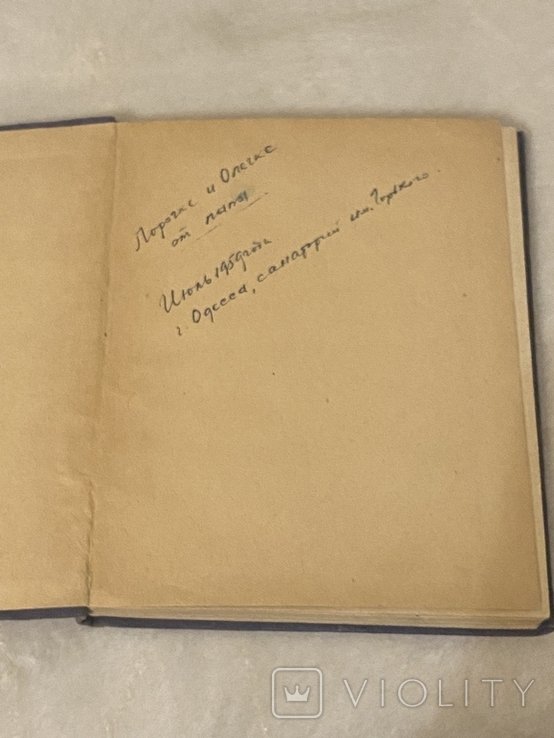 Лорочке и Олечке
от папы.
Июль 1959 года
г. Одесса, санаторий им. Горького.
VIOLITY